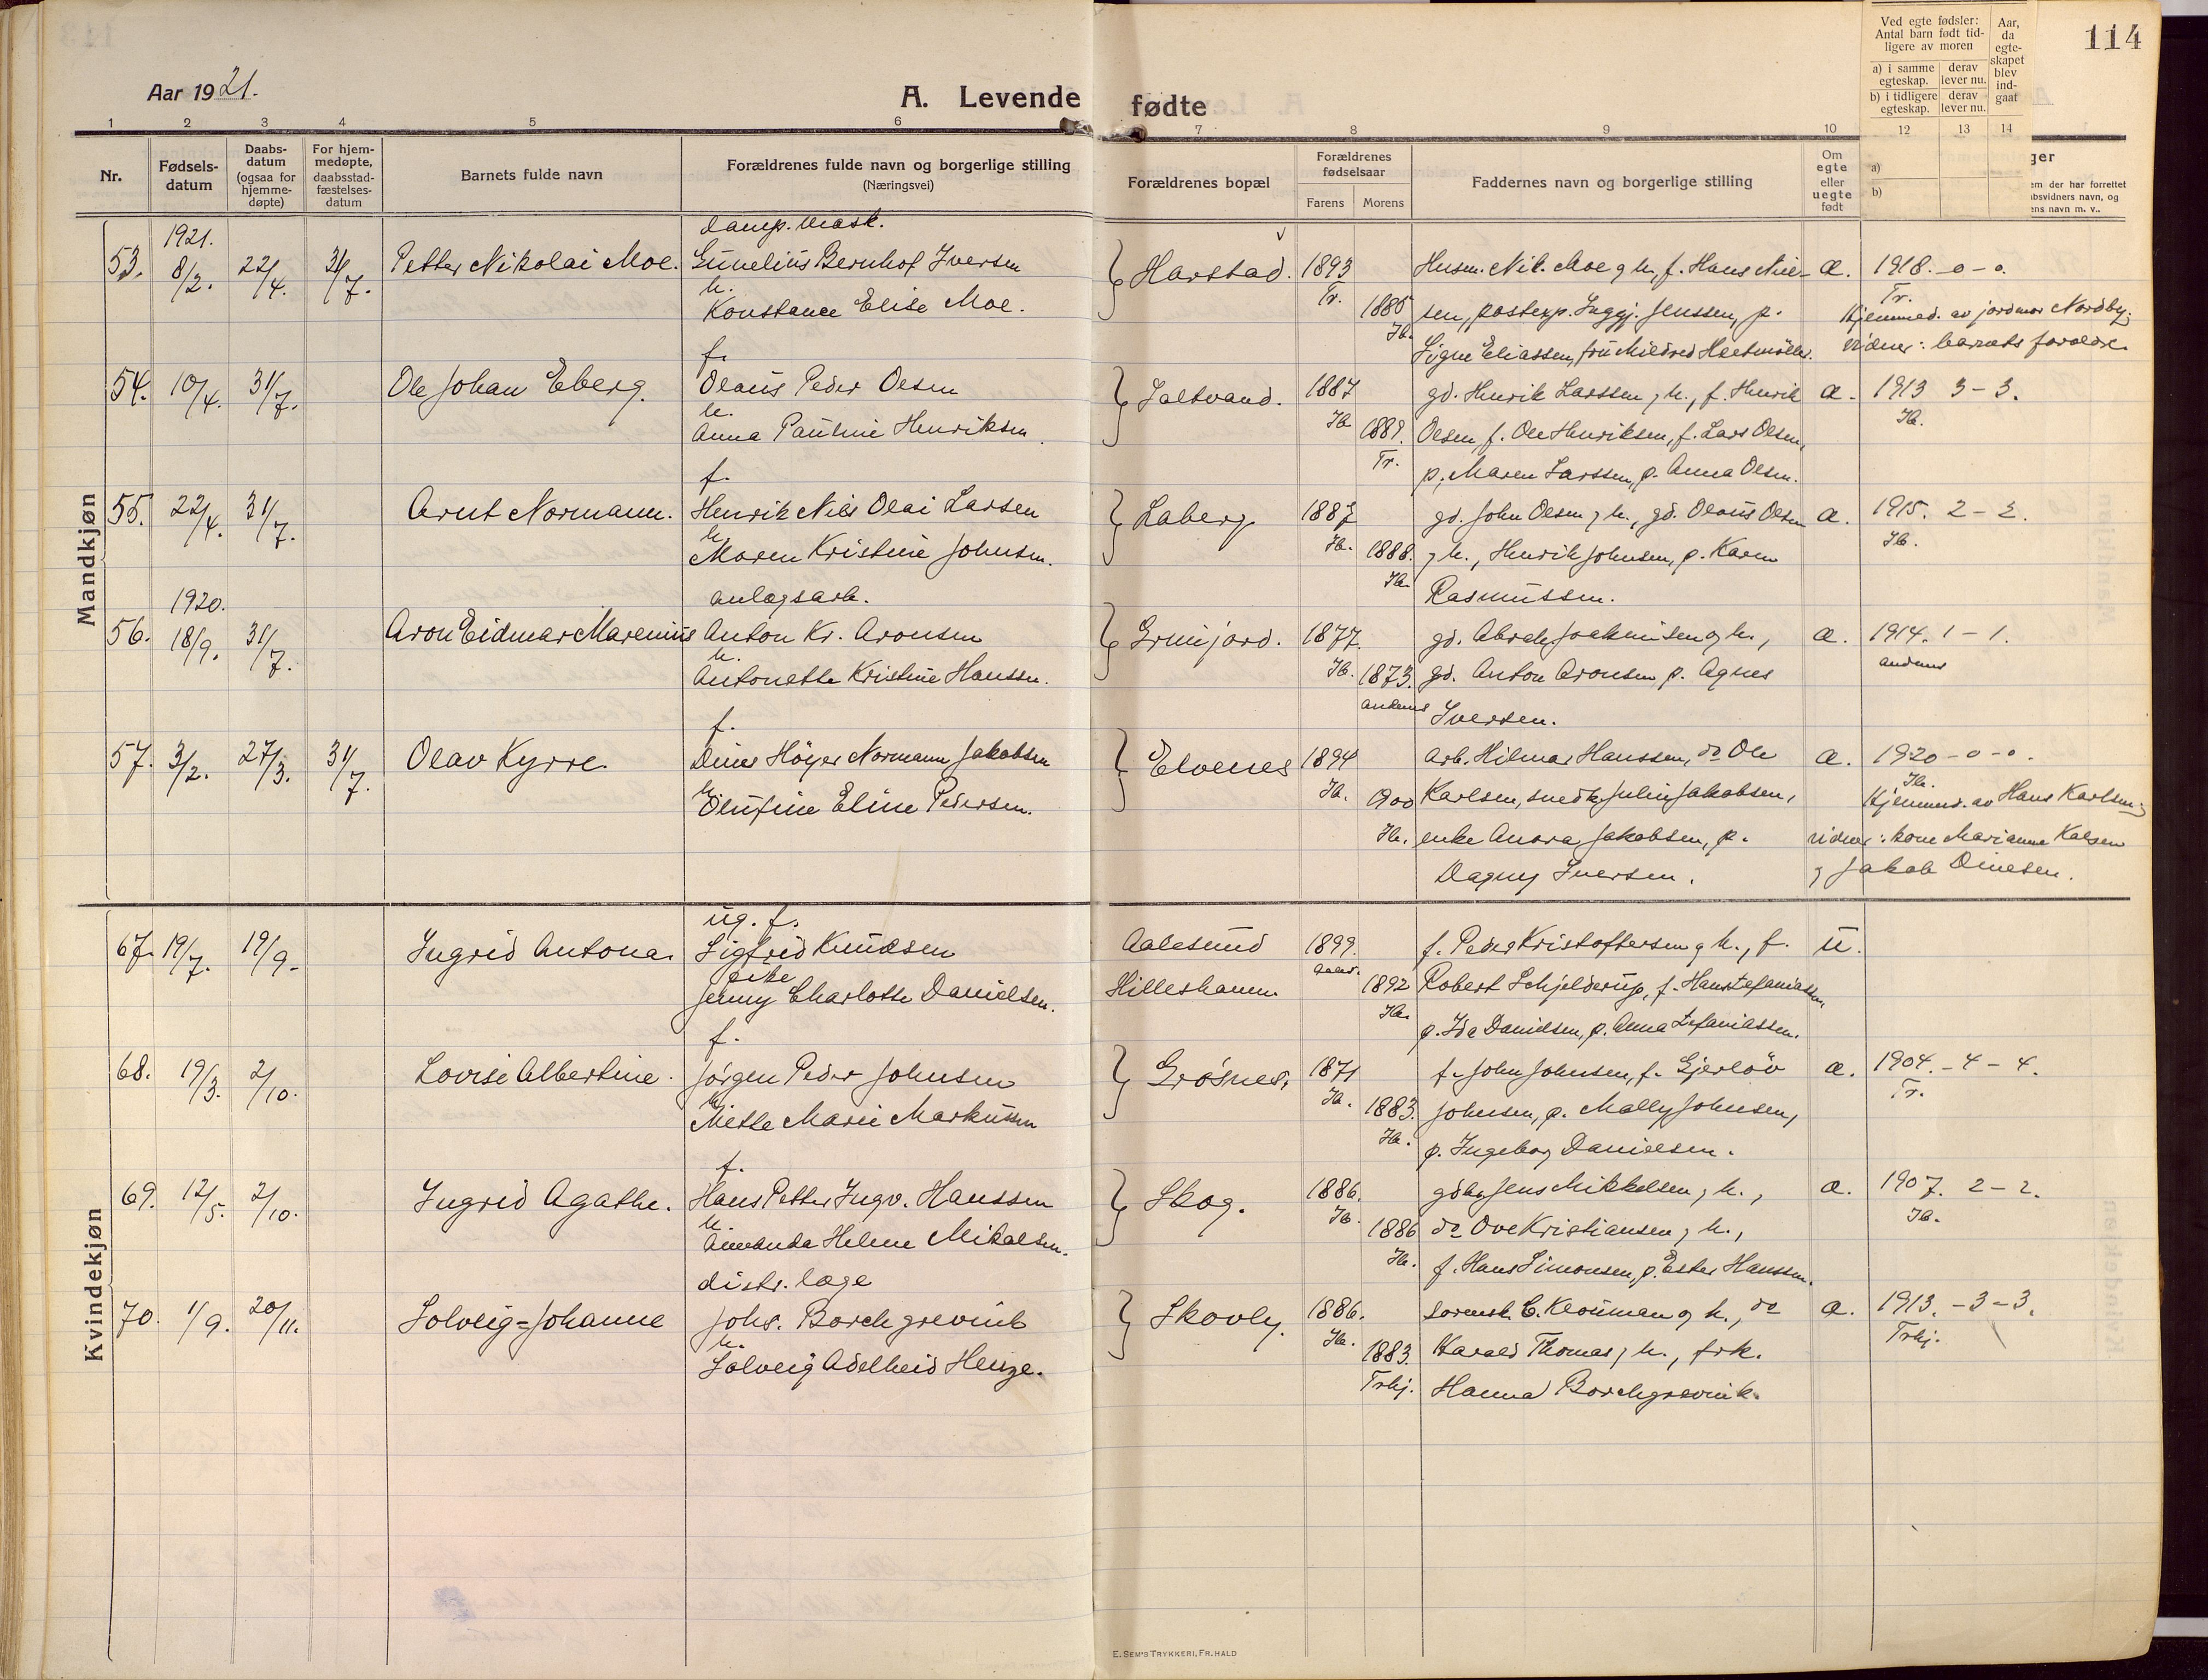 114
Aar 1921.
A. Levende fødte
Ved egte fødsler: Antal barn født tidligere av moren
a) i samme egteskap. derav lever nu.
b) i tidligere egteskap. derav lever nu.
Aar, da egteskapet blev indgaat
1 2 3 4 5 6 7 8 9 10 12 13 14
Nr.
Fødselsdatum
Daabsdatum (ogsaa for hjemmedøpte)
For hjemmedøpte, daabsstadfæstelsesdatum
Barnets fulde navn
Forældrenes fulde navn og borgerlige stilling (Næringsvei)
Forældrenes bopæl
Forældrenes fødselsaar
Farens Morens
Faddernes navn og borgerlige stilling
Om egte eller uegte født
a)
b)
ger
em der har forrettet
bsvidners navn, og
ens navn m. v..
Mandkjøn
1921. damp. mask.
53. 8/2. 22/4. 31/7. Petter Nikolai Moe. Bernhof Iversen Harstad. 1893 Husm. Nik. Moe og h., f. Hans Niel- æ. 1918. - 0 - 0.
h. Tr. Tr.
Konstance Elise Moe. 1886 sen, postexp. Jenssen, p. Hjemmed. av jordmor Nordby.
Hb. Signe Eliassen, fru Mildred vidner: barnets foreldre
f.
54. 10/4. 31/7. Ole Johan Eberg. Olaus Peder Olsen Saltvand. 1887 gd. Henrik Larssen, h., f. Henrik æ. 1913 3 - 3.
h. Hb. Hb.
Anna Pauline Henriksen 1889. Olsen, f. Ole Henriksen, f. Lars Olsen,
Tr. p. Maren Larssen, p. Anna Olsen.
f.
55. 22/4. 31/7. Arnt Normann. Henrik Nils Olai Larsen Laberg 1887 gd. John Olsen, h., gd. Olaus Olsen æ. 1915. 2 - 2.
h. Hb. Hb.
Maren Kristine Johnsen. 1888. , h., Henrik Johnsen, p. Karen
Hb. Rasmussen.
1920. anlægsarb.
56. 18/9. 31/7. Aron Eidmar Marenius Anton Kr. Aronsen Grunfjord. 1877. gd. Abrah. Joakimsen og h., æ. 1914. 1 - 1.
h. Hb. andenes
Antonette Kristine Hanssen. 1873. gd. Anton Aronsen p. Agnes
andenes Iversen.
f.
57. 3/2. 27/3. 31/7. Olav Kyrre. Dines Höyer Normann Jakobsen Elvenes 1894 arb. Hilmar Hanssen, do Ole æ. 1920 - 0 - 0.
h. Hb. Hb.
Olufine Eline Pedersen. 1900 Karlsen, snedk. Julin Jakobsen, Hjemmed. av Hans Karlsen
Hb. enke Anora Jakobsen, p. vidner: kone Marianne Kalsen
Dagny Iversen. , Jakob Dinesen.
Kvindekjøn
ug. f.
67. 19/7. 19/9. Ingrid Antona. Sigfrid Knudsen Aalesund 1899. f. Peder Kristoffersen og h., f. u.
pike Aales.
Jenny Charlotte Danielsen. Hilleshamn. 1892 Robert Schjelderup, f. Hans Stefaniassen,
Hb. p. Ida Danielsen, p. Anna Stefaniassen.
f.
68. 19/3. 2/10. Lovise Albertine. Jörgen Peder Johnsen Grösnes, 1871 f. John Johnsen, f. Gjerlöv æ. 1904. - 4 - 4.
h. Hb. Tr.
Mette Marie Markussen 1883. Johnsen, p. Mally Johnsen,
Hb. p. Ingeborg Danielsen.
f.
69. 12/5. 2/10. Ingrid Agathe. Hans Petter Ingv. Hanssen Skog. 1886. gdbr. Jens Mikkelsen, h., æ. 1907. 2 - 2.
h. Hb. Hb.
Amanda Helene Mikalsen. 1886 do Ove Kristiansen, h.,
Hb. f. Hans Simonsen, p. Ester Hanssen.
distr. læge
70. 1/9. 20/11. Solveig=Johanne Johs. Borchgrevink Skovly. 1886. sorensk. C. Klouman og h., do æ. 1913. - 3 - 3.
h. Hb. Trhj.
Solveig Adelheid Henze. 1883. Harald Thomas, h., frk.
Trhj. Hanna Borchgrevink.
E. SEM'S TRYKKERI, FR.HALD